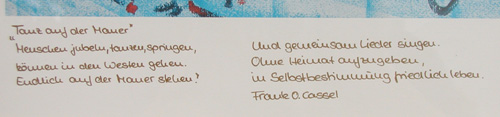 „Tanz auf der Mauer"
Menschen jubeln, tanzen, springen,
können in den Westen gehen.
Endlich auf der Mauer stehen!
Und gemeinsam Lieder singen.
Ohne Heimat aufzugeben,
in Selbstbestimmung friedlich leben.
Frank O. Cassel